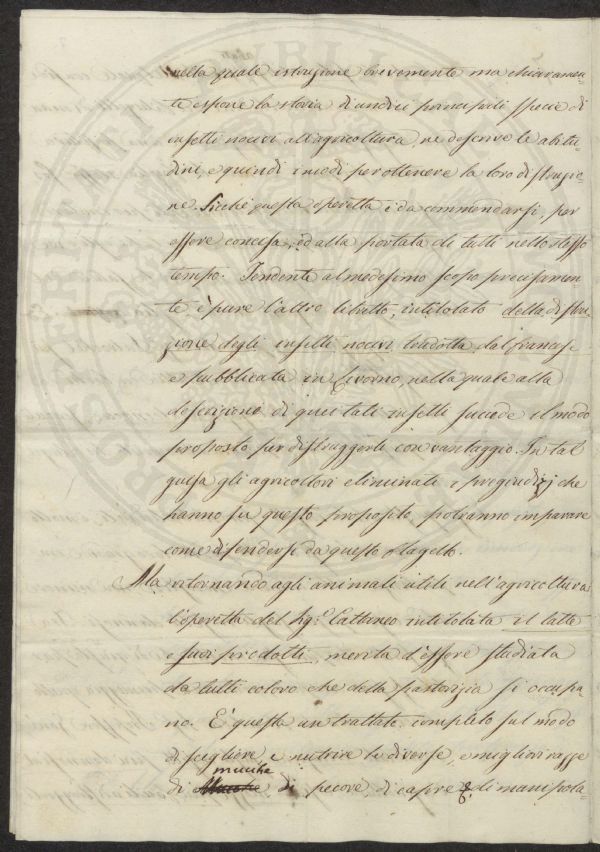 nella quale istruzione brevemente ma chiaramen-
te espone la storia d'undici principali specie di
insetti nocivi all'agricoltura, ne descrive le abitu-
dini, e quindi i modi per ottenere la loro distruzio-
ne. Sicchè questa operetta è da commendarsi, per
essere concisa, ed alla portata di tutti nello stesso
tempo. Tendente al medesimo scopo precisamen-
te è pure l'altro libretto, intitolato della distru-
zione degli insetti nocivi tradotta dal francese
e pubblicata in Livorno, nella quale alla
descrizione di questi tali insetti succede il modo
proposto per distruggerli con vantaggio. In tal
guisa gli agricoltori eliminati i pregiudizj che
hanno su questo proposito potranno imparare
come difendersi da questo flagello.
Ma ritornando agli animali utili nell'agricoltura
l'operetta del Sig.r Cattaneo intitolata il latte
e suoi prodotti, merita d'essere studiata
da tutti coloro che della pastorizia si occupa-
no. È questa un trattato completo sul modo
di scegliere e nutrire le diverse, e migliori razze
mucche
di di pecore, di capre e di manipola-